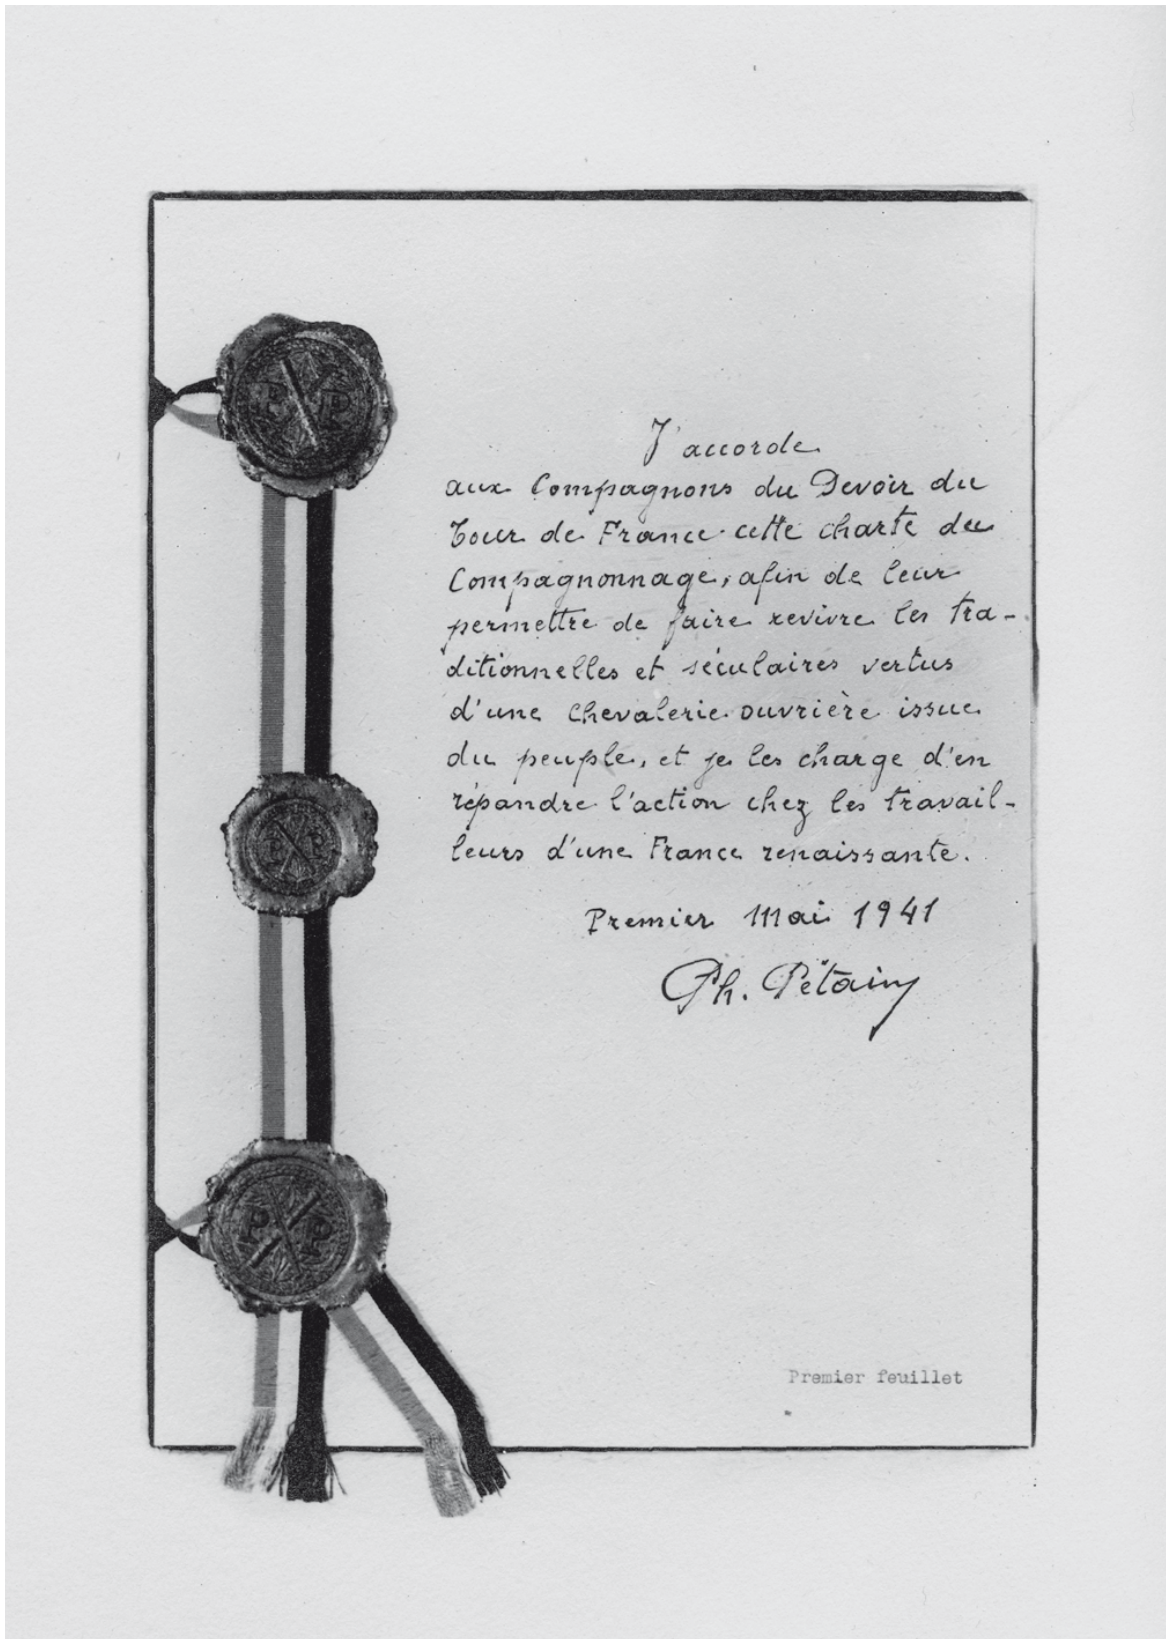 P P
J'accorde
aux Compagnons du Devoir du
Tour de France cette charte du
Compagnonnage, afin de leur
permettre de faire revivre les tra-
ditionnelles et séculaires vertus
d'une chevalerie ouvrière issue
du peuple, et je les charge d'en
répandre l'action chez les travail-
leurs d'une France renaissante.
P P
Premier Mai 1941
Ph. Pétain
P P
Premier feuillet